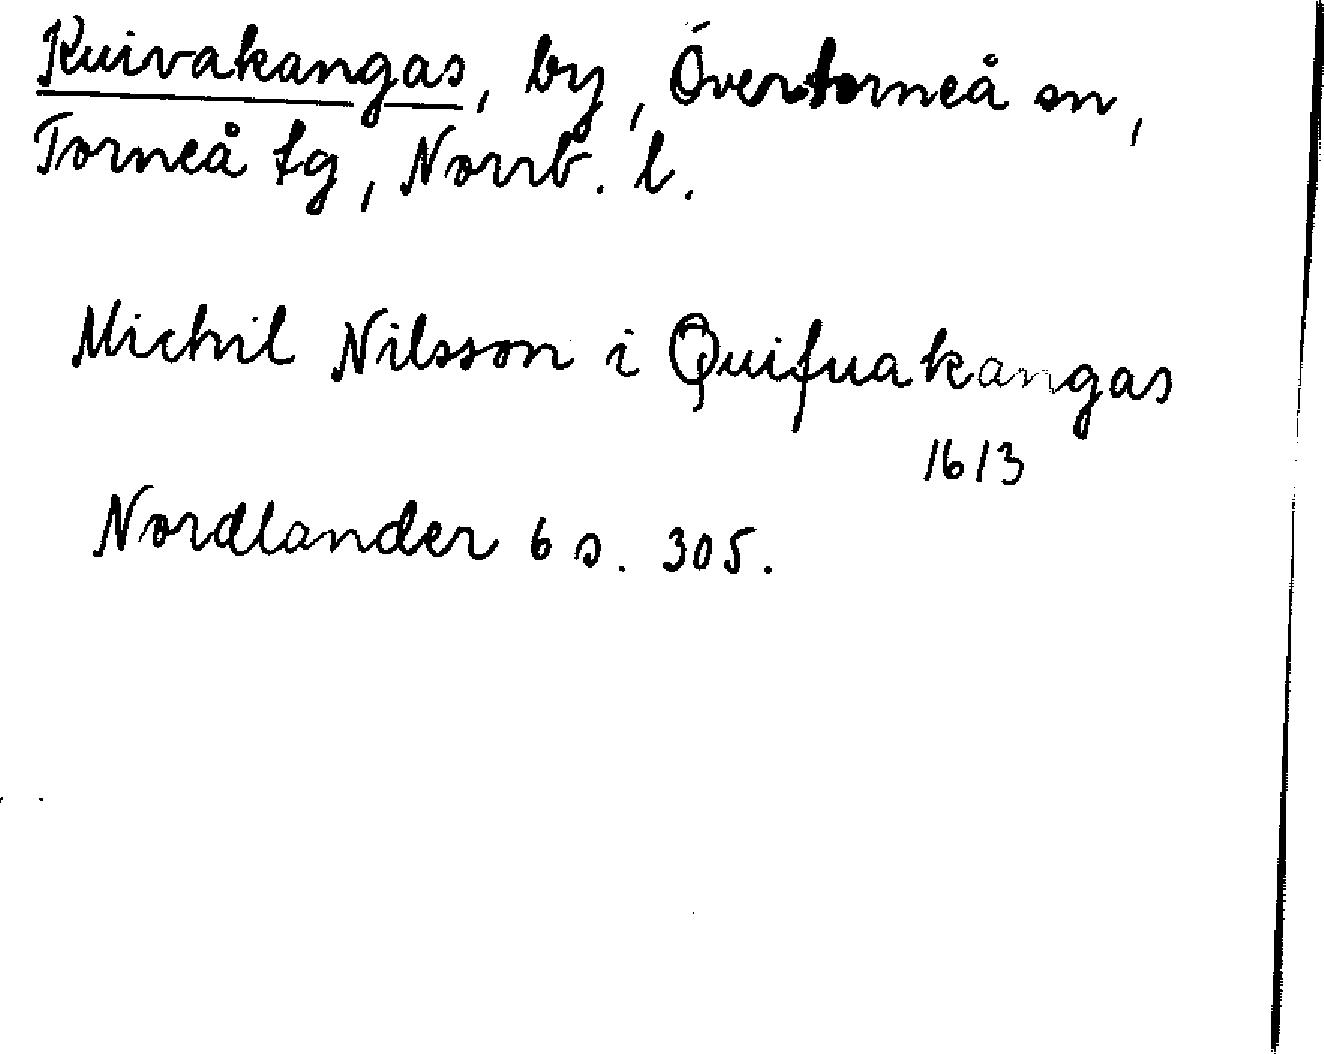 Kuivakangas, by, Övertorneå sn,
Torneå tg, Norrb. l.
Michil Nilsson i Quifuakangas
1613
Nordlander 6 s. 305.